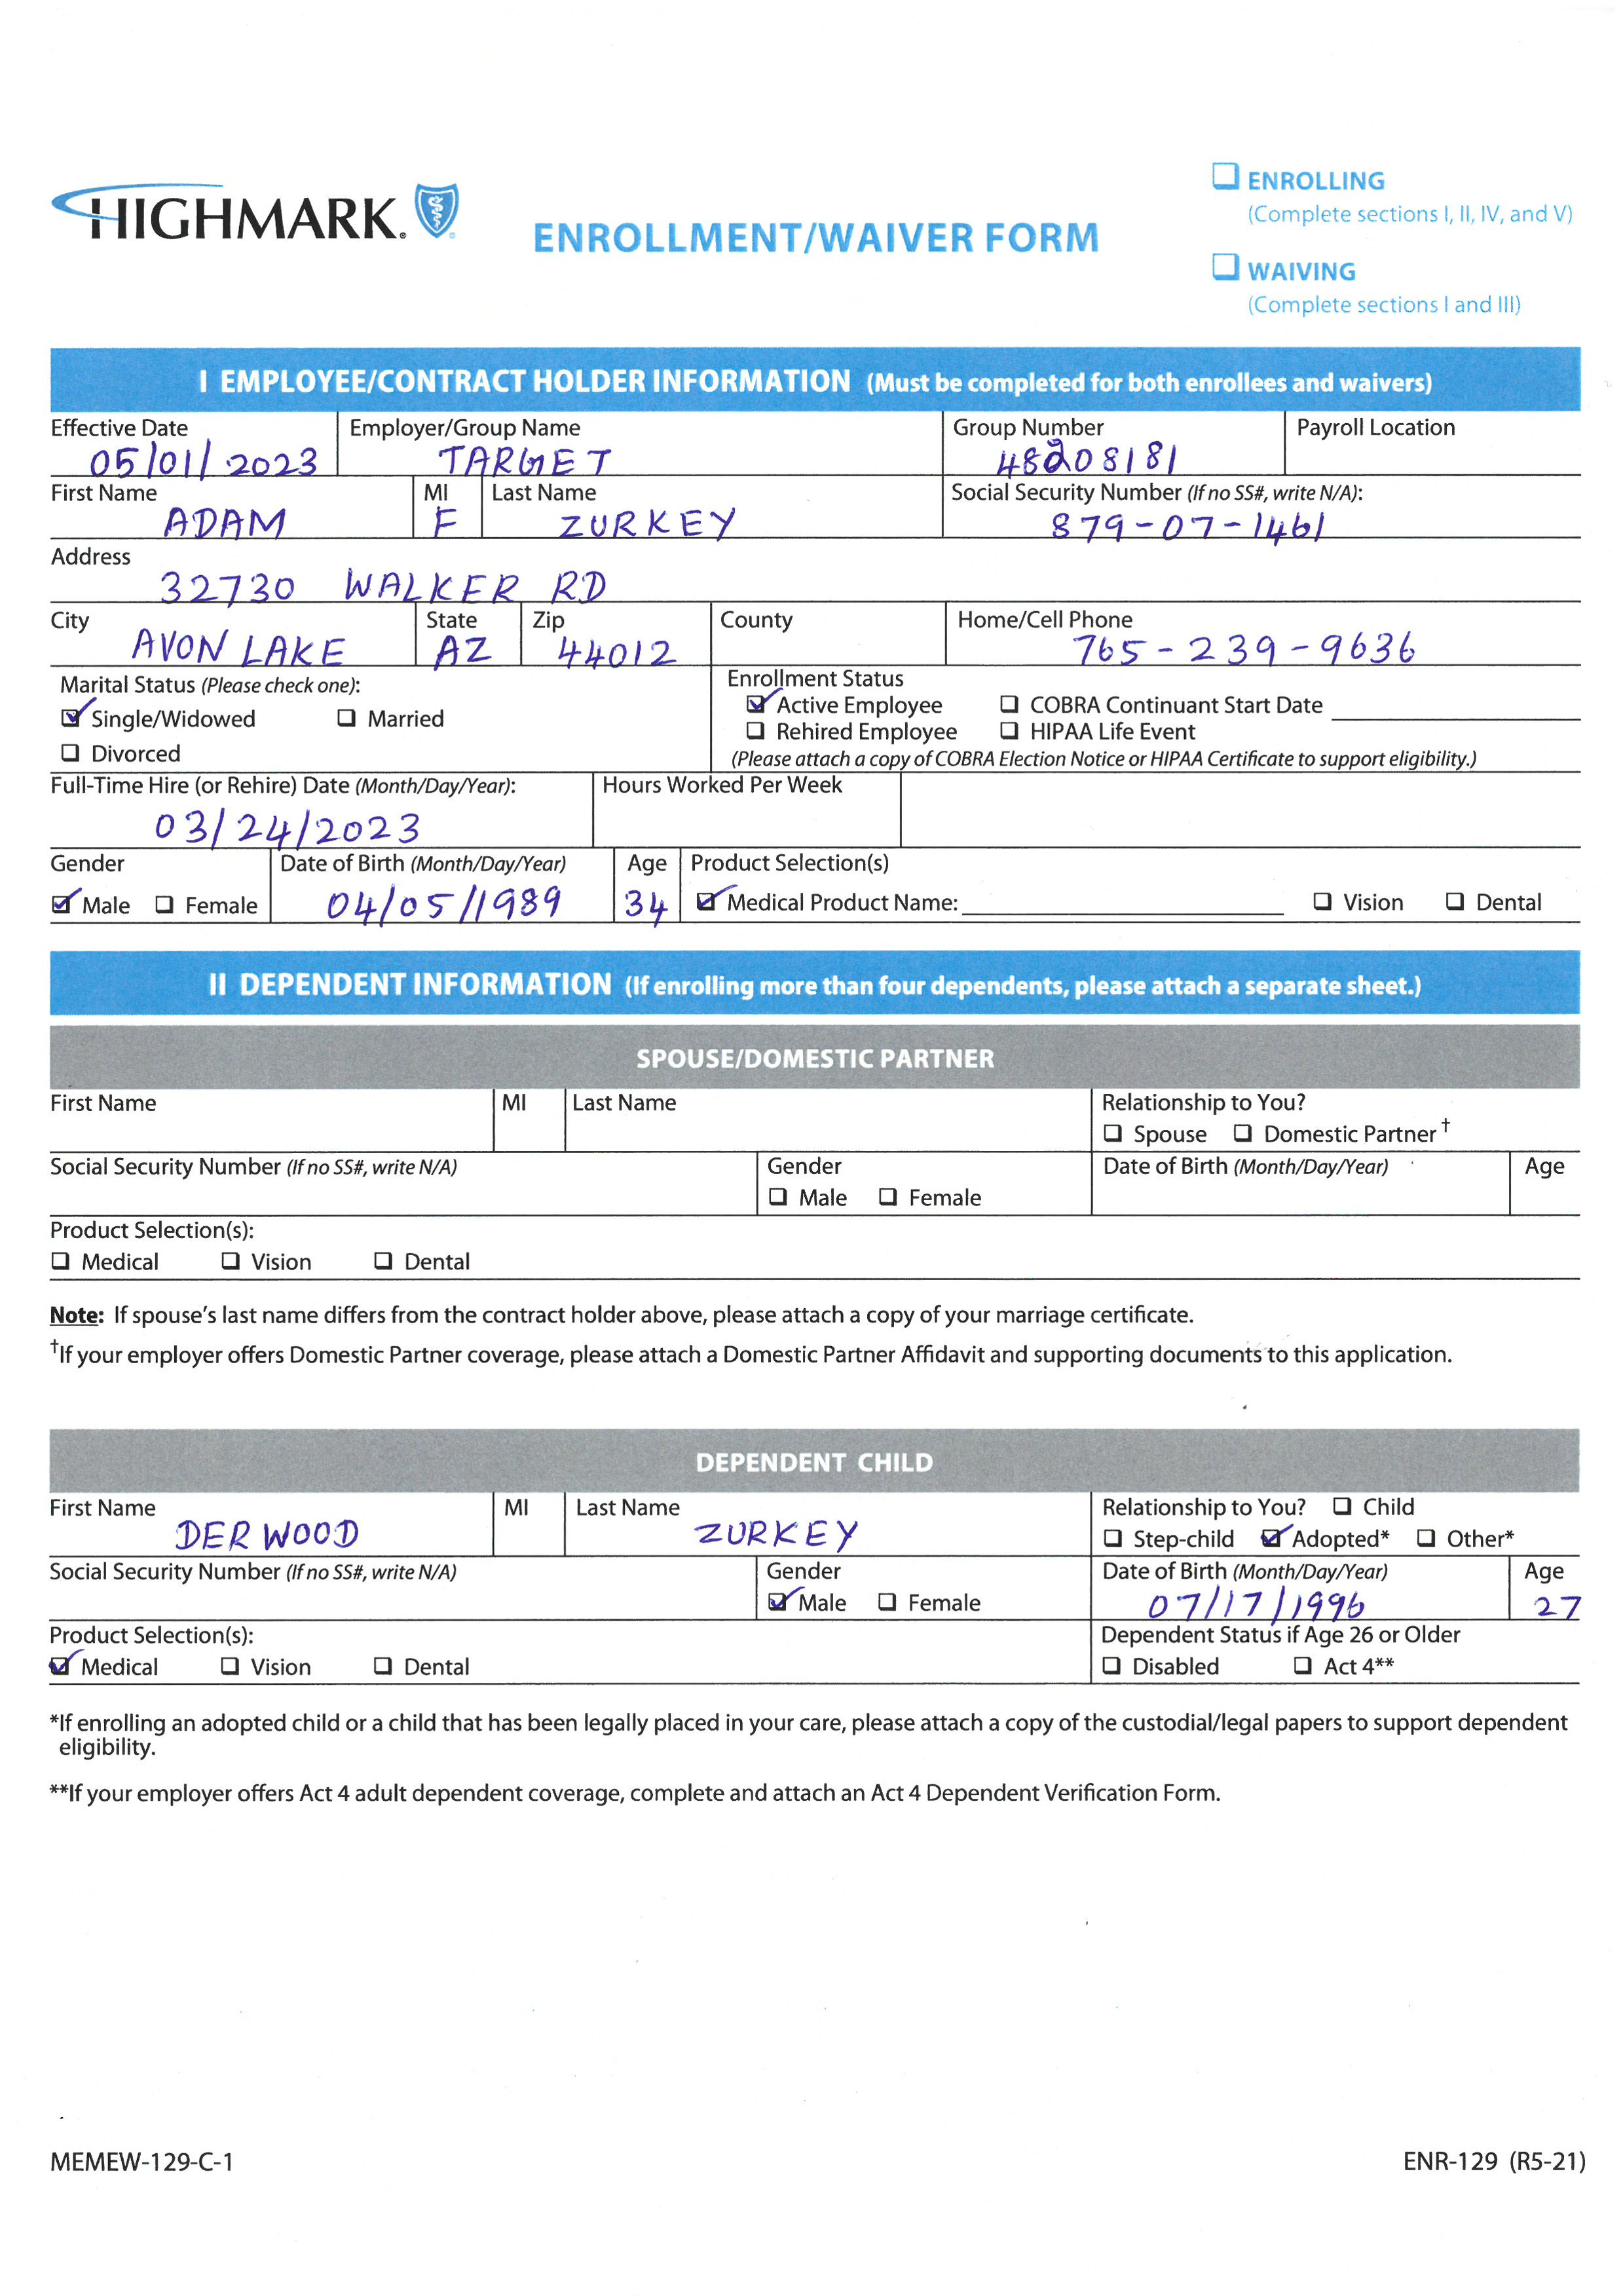 HIGHMARK®
ENROLLMENT/WAIVER FORM
ENROLLING
(Complete sections I, II, IV, and V)
WAIVING
(Complete sections I and III)
I EMPLOYEE/CONTRACT HOLDER INFORMATION (Must be completed for both enrollees and waivers)
Effective Date Employer/Group Name Group Number Payroll Location
05/01/2023 TARGET 48208181
First Name MI Last Name Social Security Number (If no SS#, write N/A):
ADAM F ZURKEY 879-07-1461
Address
32730 WALKER RD
City State Zip County Home/Cell Phone
AVON LAKE AZ 44012 765-239-9636
Marital Status (Please check one): Enrollment Status
Single/Widowed Married Active Employee COBRA Continuant Start Date
Divorced Rehired Employee HIPAA Life Event
(Please attach a copy of COBRA Election Notice or HIPAA Certificate to support eligibility.)
Full-Time Hire (or Rehire) Date (Month/Day/Year): Hours Worked Per Week
03/24/2023
Gender Date of Birth (Month/Day/Year) Age Product Selection(s)
Male Female 04/05/1989 34 Medical Product Name: Vision Dental
II DEPENDENT INFORMATION (If enrolling more than four dependents, please attach a separate sheet.)
SPOUSE/DOMESTIC PARTNER
First Name MI Last Name Relationship to You?
Spouse Domestic Partner†
Social Security Number (If no SS#, write N/A) Gender Date of Birth (Month/Day/Year) Age
Male Female
Product Selection(s):
Medical Vision Dental
Note: If spouse's last name differs from the contract holder above, please attach a copy of your marriage certificate.
†If your employer offers Domestic Partner coverage, please attach a Domestic Partner Affidavit and supporting documents to this application.
DEPENDENT CHILD
First Name MI Last Name Relationship to You? Child
DERWOOD ZURKEY Step-child Adopted* Other*
Social Security Number (If no SS#, write N/A) Gender Date of Birth (Month/Day/Year) Age
Male Female 07/17/1996 27
Product Selection(s): Dependent Status if Age 26 or Older
Medical Vision Dental Disabled Act 4**
*If enrolling an adopted child or a child that has been legally placed in your care, please attach a copy of the custodial/legal papers to support dependent
eligibility.
**If your employer offers Act 4 adult dependent coverage, complete and attach an Act 4 Dependent Verification Form.
MEMEW-129-C-1 ENR-129 (R5-21)